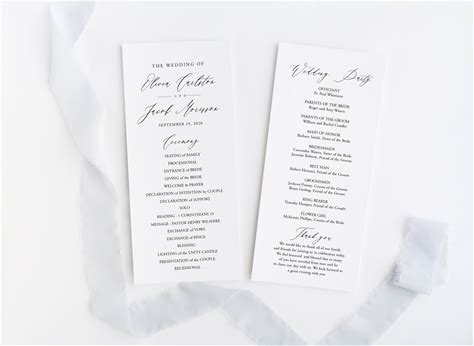 THE WEDDING OF
Olivia Carlston
AND
Jacob Morisson
SEPTEMBER 25, 2020
Ceremony
SEATING of FAMILY
PROCESSIONAL
ENTRANCE of BRIDE
GIVING of the BRIDE
WELCOME & PRAYER
DECLARATION of INTENTION by COUPLE
DECLARATION of SUPPORT
SOLO
READING · 1 CORINTHIANS 13
MESSAGE · PASTOR HENRY WILSHIRE
EXCHANGE of VOWS
EXCHANGE of RINGS
BLESSING
LIGHTING of the UNITY CANDLE
PRESENTATION of the COUPLE
RECESSIONAL
Wedding Party
OFFICIANT
Paul Whitmore
PARENTS OF THE BRIDE
Roger and Amy Watson
PARENTS OF THE GROOM
William and Rachel Candler
MAID OF HONOR
Susannah Smith, Sister of the Bride
BRIDESMAIDS
Cassandra Watson, Sister of the Bride
Jasmine Roberts, Sister of the Bride
BEST MAN
Jason Howard, Friend of the Groom
GROOMSMEN
Jackson Porter, Cousin of the Groom
Friend of the Groom
RING BEARER
Timothy Hamper, Cousin of the Groom
FLOWER GIRL
McKenzie Phillips, Cousin of the Groom
Thank you
We would like to thank all of our family
and friends for joining us to celebrate today.
We feel honored and blessed that so many
of you have traveled from near and far
to share our day with us. We look forward to
a great evening with you.